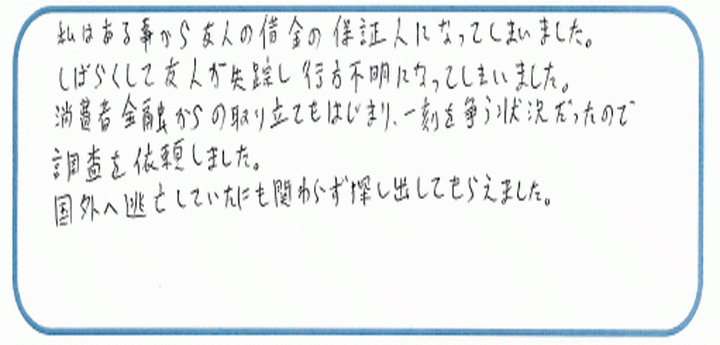 私はある事から友人の借金の保証人になってしまいました。
しばらくして友人が失踪し行方不明になってしまいました。
消費者金融からの取り立てもはじまり、一刻を争う状況だったので
調査を依頼しました。
国外へ逃亡していたにも関わらず探し出してもらえました。